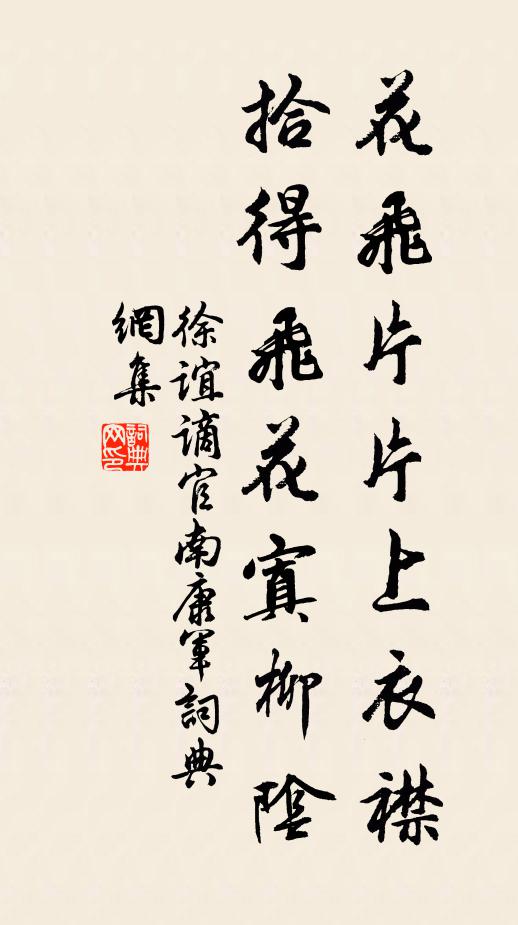 花飛片片上衣襟
拾得飛花寘柳陰
徐誼謫官南康軍詞典
網集
詞典
网印